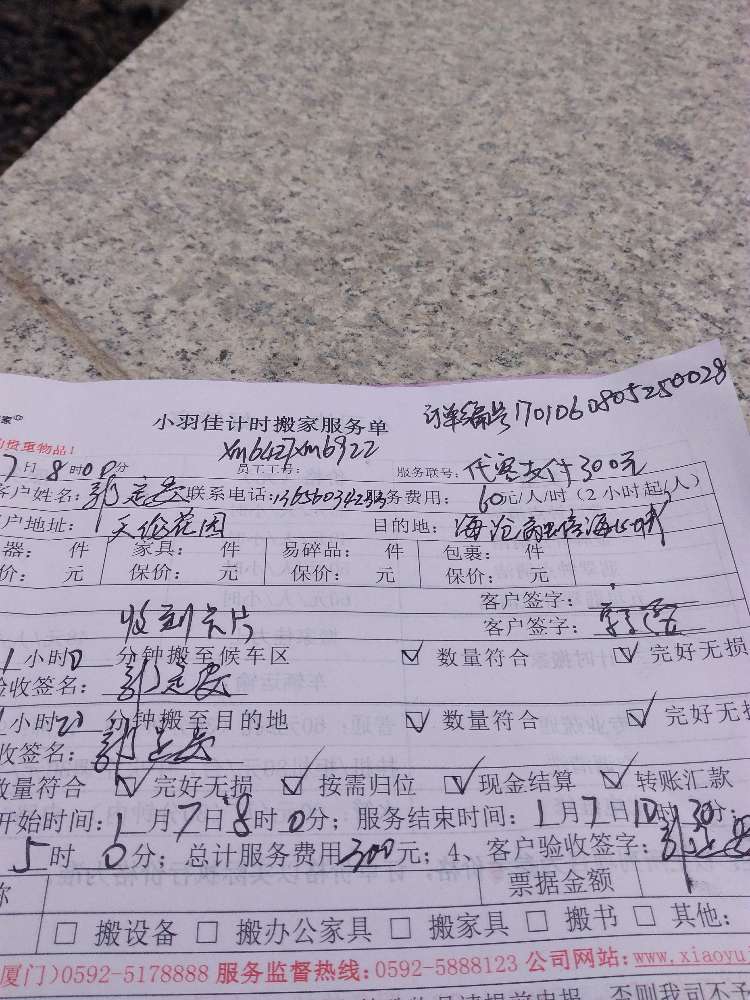 家®
小羽佳计时搬家服务单 订单编号1701060805250028
的贵重物品!
xm6427xm6922
7日8时00分 员工工号: 服务联号: 代客支付300元
客户姓名: 联系电话: 服务费用: 60元/人/时(2小时起/人)
户地址: 天伦花园 目的地: 海沧
器: 件 家具: 件 易碎品: 件 包裹: 件
价: 元 保价: 元 保价: 元 保价: 元
客户签字:
收到卡片 客户签字:
1小时0分钟搬至候车区 ☑ 数量符合 ☑ 完好无损
验收签名:
小时20分钟搬至目的地 ☑ 数量符合 ☑ 完好无损
收签名:
数量符合 ☑ 完好无损 ☑ 按需归位 ☑ 现金结算 ☑ 转账汇款
开始时间: 1月7日8时0分; 服务结束时间: 1月7日10时30分;
5时0分; 总计服务费用300元; 4、客户验收签字:
称 票据金额
□ 搬设备 □ 搬办公家具 □ 搬家具 □ 搬书 □ 其他:
厦门)0592-5178888 服务监督热线:0592-5888123 公司网站:www.xiaoyuj